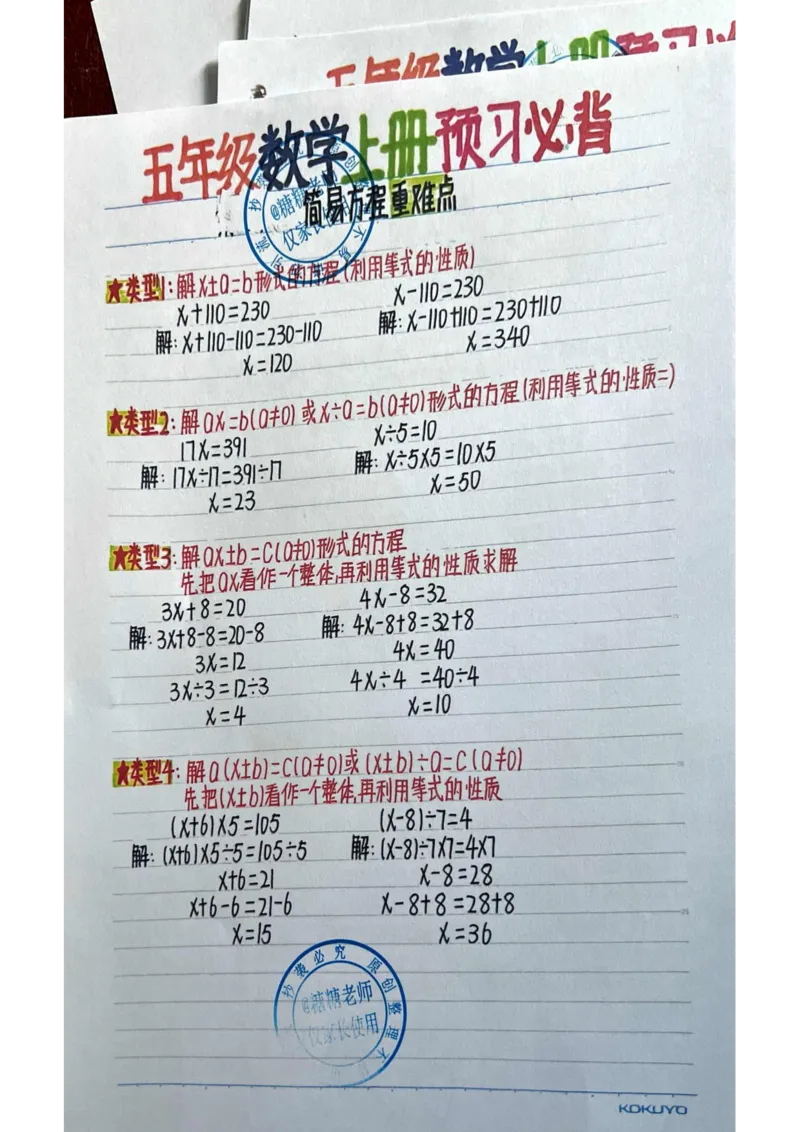 五年级数学上册预习必
五年级数学上册预习必背
简易方程重难点
★类型1:解x±a=b形式的方程(利用等式的性质)
x+110=230 x-110=230
解:x+110-110=230-110 解:x-110+110=230+110
x=120 x=340
★类型2:解ax=b(a≠0)或x÷a=b(a≠0)形式的方程(利用等式的性质=)
17x=391 x÷5=10
解:17x÷17=391÷17 解:x÷5×5=10×5
x=23 x=50
★类型3:解ax±b=C(a≠0)形式的方程
先把ax看作一个整体,再利用等式的性质求解
3x+8=20 4x-8=32
解:3x+8-8=20-8 解:4x-8+8=32+8
3x=12 4x=40
3x÷3=12÷3 4x÷4=40÷4
x=4 x=10
★类型4:解a(x±b)=C(a≠0)或(x±b)÷a=C(a≠0)
先把(x±b)看作一个整体,再利用等式的性质
(x+6)×5=105 (x-8)÷7=4
解:(x+6)×5÷5=105÷5 解:(x-8)÷7×7=4×7
x+6=21 x-8=28
x+6-6=21-6 x-8+8=28+8
x=15 x=36
抄袭必究 原创整理不
@糖糖老师
仅家长使用
KOKUYO